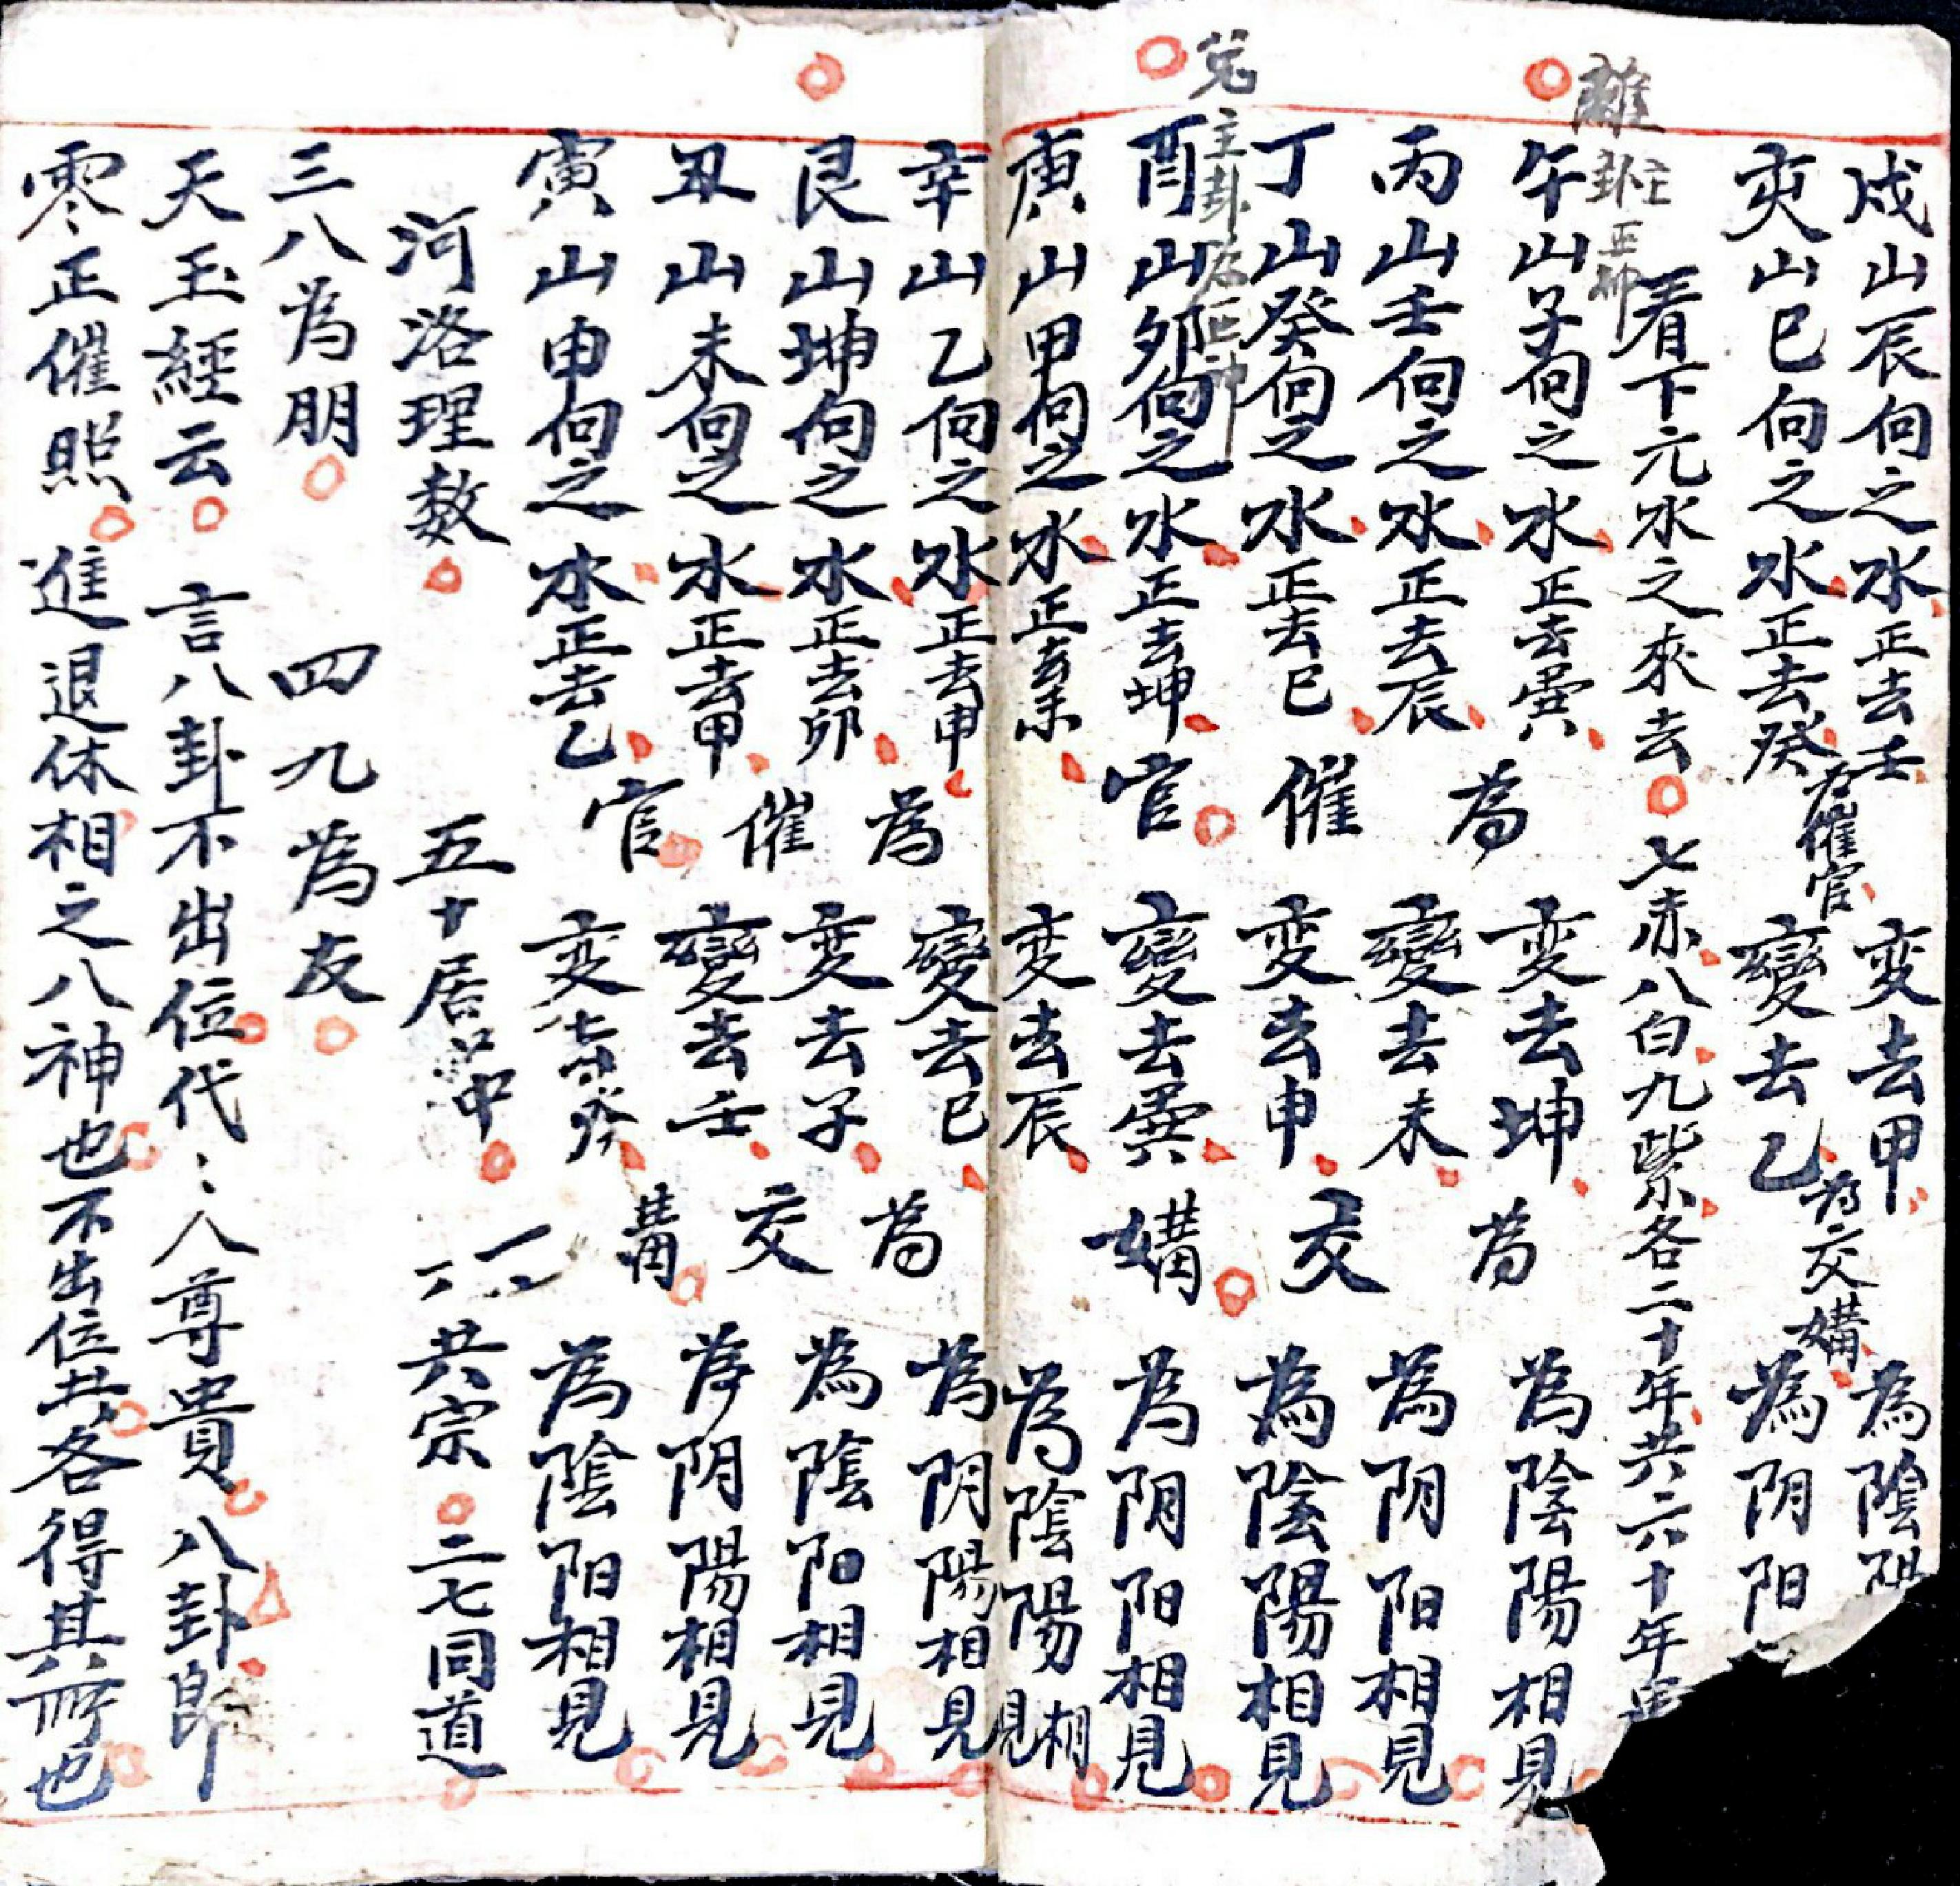 戌山辰向之水正去壬 变去甲 為陰阳
亥山巳向之水正去癸 變去乙 為阴阳
為催官 為交媾
看下元水之來去 七赤八白九紫各二十年共六十年
離卦主正神
午山子向之水正去巽 变去坤 為陰陽相見
丙山壬向之水正去辰 變去未 為阴阳相見
丁山癸向之水正去巳 变去申 為陰陽相見
兌主卦為正神
酉山卯向之水正去坤 變去巽 為阴阳相見
庚山甲向之水正去未 变去辰 為陰陽相見
為催官 為交媾
辛山乙向之水正去申 變去巳 為阴陽相見
艮山坤向之水正去卯 变去子 為陰阳相見
丑山未向之水正去甲 變去壬 為阴陽相見
寅山申向之水正去乙 变去癸 為陰阳相見
為催官 為交
河洛理数 五十居中 一六共宗 二七同道
三八為朋 四九為友
天玉經云 言八卦不出位代々人尊貴 八卦即
零正催照 進退休相之八神也不出位共各得其所也